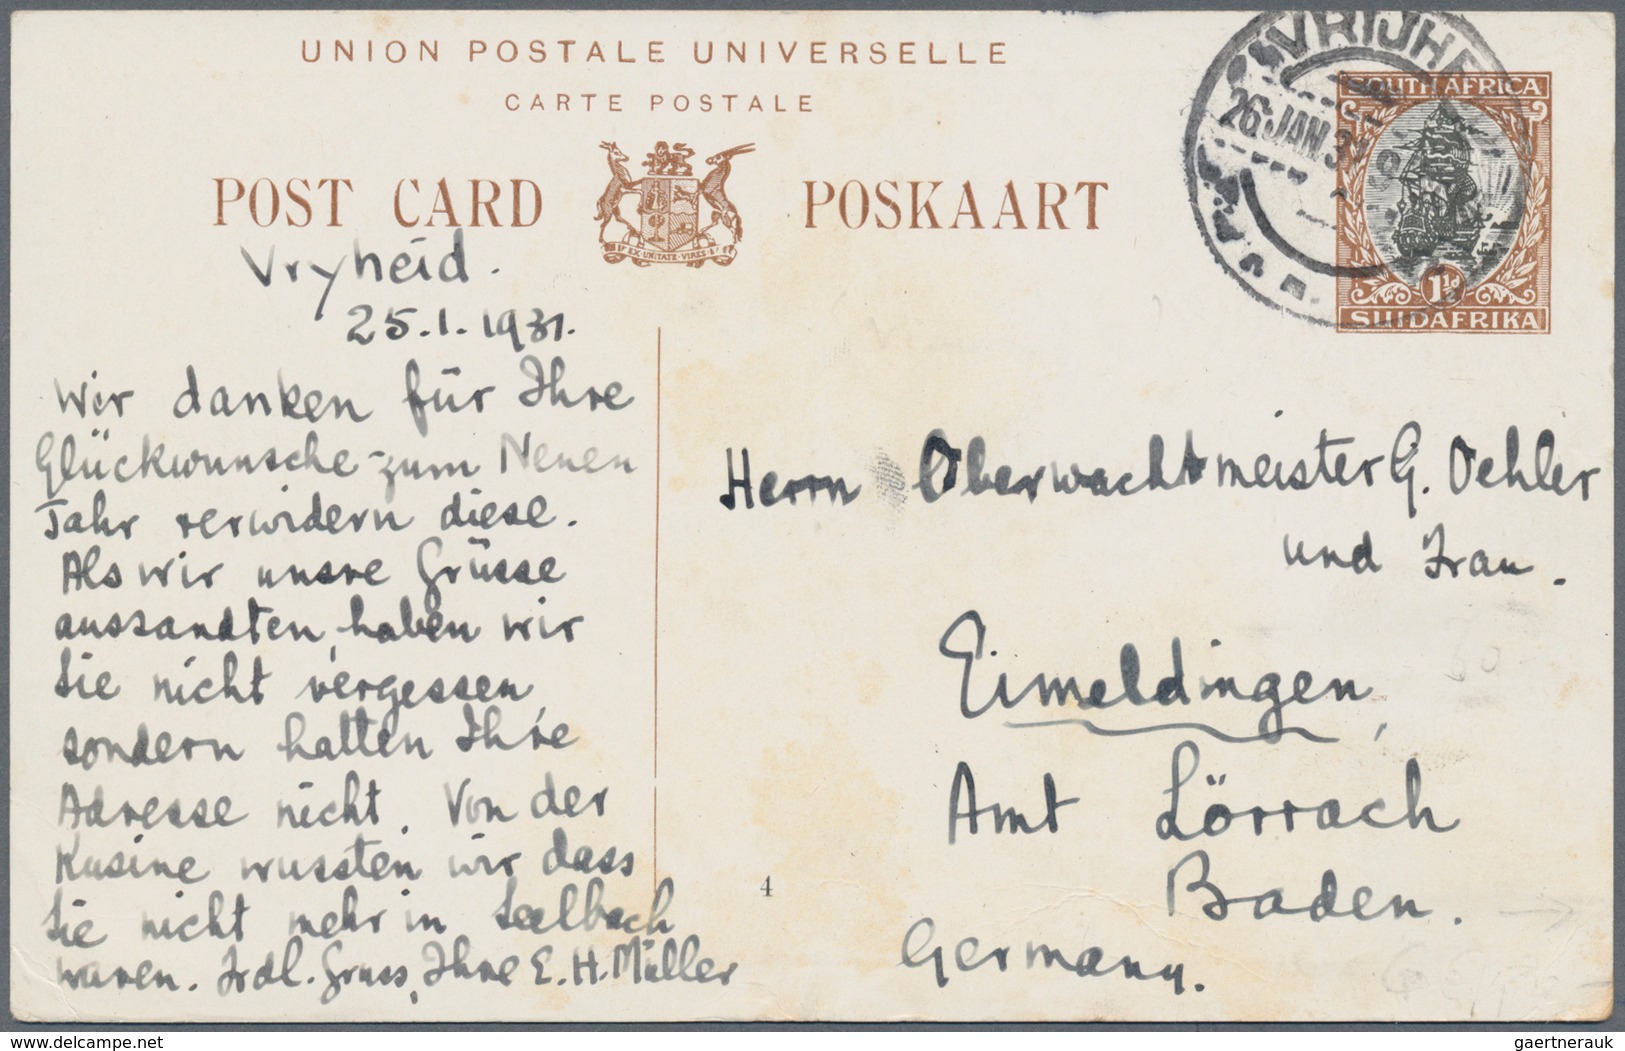 UNION POSTALE UNIVERSELLE
CARTE POSTALE
POST CARD
POSKAART
EX·UNITATE·VIRES
VRIJHE
26 JAN 31
SOUTH AFRICA
1½d
SUIDAFRIKA
Vryheid.
25.1.1931.
Wir danken für Ihre
Glückwunsche zum Neuen
Jahr verwidern diese.
Als wir unsre Grüsse
aussandten, haben wir
Sie nicht vergessen,
sondern hatten Ihre
Adresse nicht. Von der
Kusine wussten wir dass
Sie nicht mehr in Seelbach
waren. Frdl. Gruss, Ihre E. H. Müller
Herrn Oberwachtmeister G. Oehler
und Frau.
Eimeldingen,
Amt Lörrach
Baden.
Germany.
4
delcampe.net
gaertnerauk